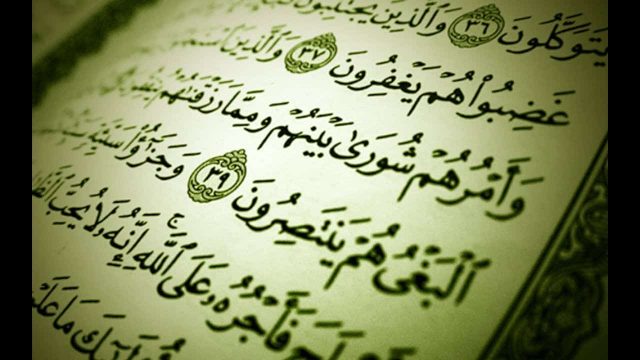 يَتَوَكَّلُونَ ٣٦ وَٱلَّذِينَ يَجْتَنِبُونَ
غَضِبُوا۟ هُمْ يَغْفِرُونَ ٣٧ وَٱلَّذِينَ
وَأَمْرُهُمْ شُورَىٰ بَيْنَهُمْ وَمِمَّا رَزَقْنَٰهُمْ
ٱلْبَغْىُ هُمْ يَنتَصِرُونَ ٣٩ وَجَزَٰٓؤُا۟ سَيِّئَةٍ
فَأَجْرُهُۥ عَلَى ٱللَّهِ ۚ إِنَّهُۥ لَا يُحِبُّ
مَا عَلَيْ